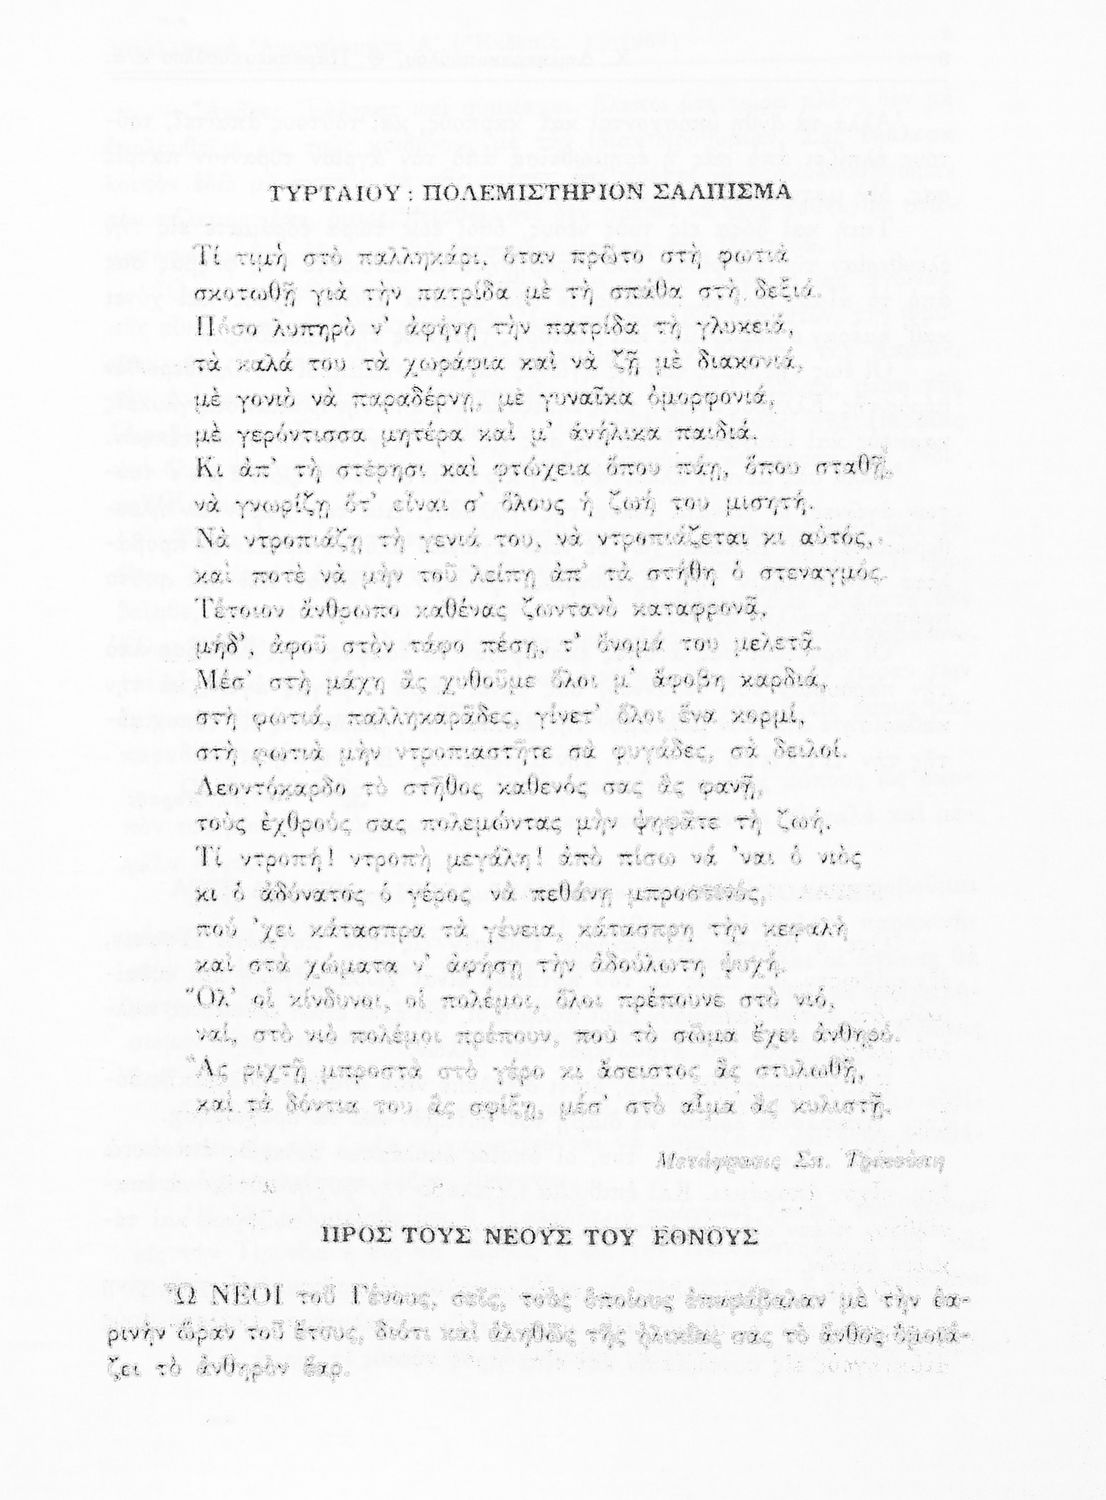 ΤΥΡΤΑΙΟΥ : ΠΟΛΕΜΙΣΤΗΡΙΟΝ ΣΑΛΠΙΣΜΑ
Τί τιμὴ στὸ παλληκάρι, ὅταν πρῶτο στὴ φωτιὰ
σκοτωθῇ γιὰ τὴν πατρίδα μὲ τὴ σπάθα στὴ δεξιά.
Πόσο λυπηρὸ ν' ἀφήνῃ τὴν πατρίδα τὴ γλυκειά,
τὰ καλά του τὰ χωράφια καὶ νὰ ζῇ μὲ διακονιά,
μὲ γονιὸ νὰ παραδέρνῃ, μὲ γυναῖκα ὀμορφονιά,
μὲ γερόντισσα μητέρα καὶ μ' ἀνήλικα παιδιά.
Κι ἀπ' τὴ στέρησι καὶ φτώχεια ὅπου πάῃ, ὅπου σταθῇ,
νὰ γνωρίζῃ ὅτ' εἶναι σ' ὅλους ἡ ζωή του μισητή.
Νὰ ντροπιάζῃ τὴ γενιά του, νὰ ντροπιάζεται κι αὐτός,
καὶ ποτὲ νὰ μὴν τοῦ λείπῃ ἀπ' τὰ στήθη ὁ στεναγμός.
Τέτοιον ἄνθρωπο καθένας ζωντανὸ καταφρονᾷ,
μήδ', ἀφοῦ στὸν τάφο πέσῃ, τ' ὄνομά του μελετᾷ.
Μέσ' στὴ μάχη ἂς χυθοῦμε ὅλοι μ' ἄφοβη καρδιά,
στὴ φωτιά, παλληκαράδες, γίνετ' ὅλοι ἕνα κορμί,
στὴ φωτιὰ μὴν ντροπιαστῆτε σὰ φυγάδες, σὰ δειλοί.
Λεοντόκαρδο τὸ στῆθος καθενός σας ἂς φανῇ,
τοὺς ἐχθρούς σας πολεμώντας μὴν ψηφᾶτε τὴ ζωή.
Τί ντροπή! ντροπὴ μεγάλη! ἀπὸ πίσω νά 'ναι ὁ νιὸς
κι ὁ ἀδύνατος ὁ γέρος νὰ πεθάνῃ μπροστινός,
πού 'χει κάτασπρα τὰ γένεια, κάτασπρη τὴν κεφαλὴ
καὶ στὰ χώματα ν' ἀφήσῃ τὴν ἀδούλωτη ψυχή.
Ὅλ' οἱ κίνδυνοι, οἱ πολέμοι, ὅλοι πρέπουνε στὸ νιό,
ναί, στὸ νιὸ πολέμοι πρέπουν, ποὺ τὸ σῶμα ἔχει ἀνθηρό.
Ἂς ριχτῇ μπροστὰ στὸ γέρο κι ἄσειστος ἂς στυλωθῇ,
καὶ τὰ δόντια του ἂς σφίξῃ, μέσ' στὸ αἷμα ἂς κυλιστῇ.
Μετάφρασις Σπ. Τρικούπη
ΠΡΟΣ ΤΟΥΣ ΝΕΟΥΣ ΤΟΥ ΕΘΝΟΥΣ
Ὦ ΝΕΟΙ τοῦ Γένους, σεῖς, τοὺς ὁποίους ἐπαράβαλαν μὲ τὴν ἐα-
ρινὴν ὥραν τοῦ ἔτους, διότι καὶ ἀληθῶς τῆς ἡλικίας σας τὸ ἄνθος ὁμοιά-
ζει τὸ ἀνθηρὸν ἔαρ.